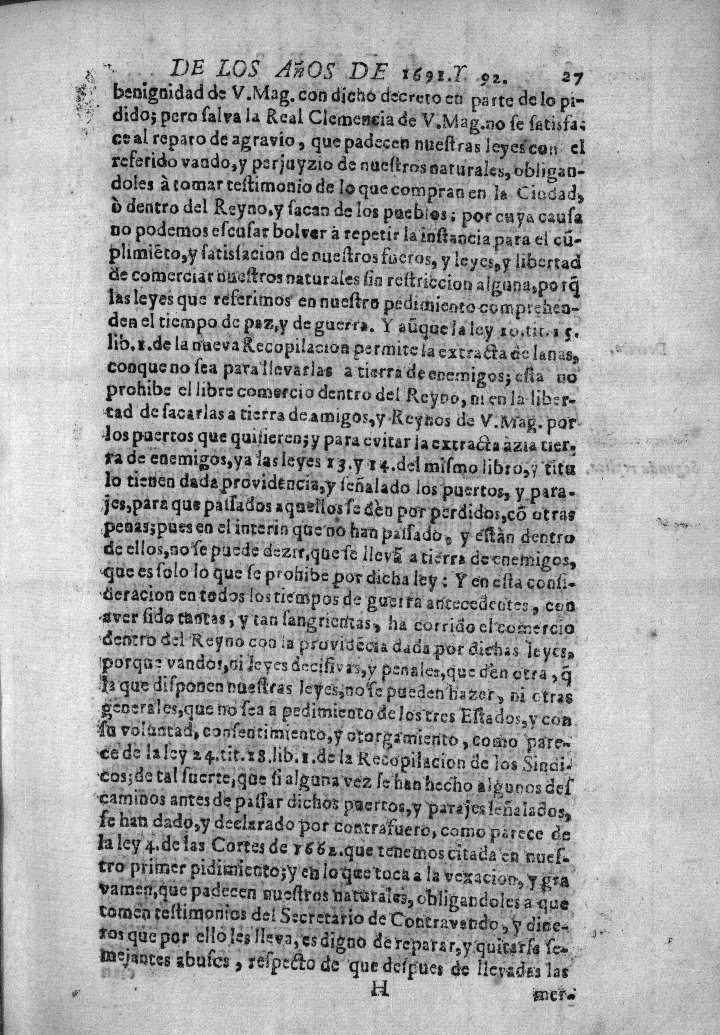 DE LOS AÑOS DE 1691. Y 92. 27
benignidad de V. Mag. con dicho decreto en parte de lo pi-
dido; pero salva la Real Clemencia de V. Mag. no se satisfa-
ce al reparo de agravio, que padecen nuestras leyes con el
referido vando, y perjuyzio de nuestros naturales, obligan-
doles à tomar testimonio de lo que compran en la Ciudad,
ò dentro del Reyno, y sacan de los pueblos; por cuya causa
no podemos escusar bolver à repetir la instancia para el cũ-
plimiẽto, y satisfacion de nuestros fueros, y leyes, y libertad
de comerciar nuestros naturales sin restriccion alguna, porq̃
las leyes que referimos en nuestro pedimiento comprehen-
den el tiempo de paz, y de guerra. Y aũque la ley 10. tit. 15.
lib. 1. de la nueva Recopilacion permite la extracta de lanas,
conque no sea para llevarlas a tierra de enemigos; esta no
prohibe el libre comercio dentro del Reyno, ni en la liber-
tad de sacarlas a tierra de amigos, y Reynos de V. Mag. por
los puertos que quisieren; y para evitar la extracta àzia tier-
ra de enemigos, ya las leyes 13. y 14. del mismo libro, y titu
lo tienen dada providencia, y señalado los puertos, y para-
jes, para que passados aquellos se dèn por perdidos, cõ otras
penas; pues en el interin que no han passado, y estàn dentro
de ellos, no se puede dezir, que se llevã a tierra de enemigos,
que es solo lo que se prohibe por dicha ley: Y en esta consi-
deracion en todos los tiempos de guerra antecedentes, con
aver sido tantas, y tan sangrientas, ha corrido el comercio
dentro del Reyno con la providẽcia dada por dichas leyes,
porque vandos, ni leyes decisivas, y penales, que dèn otra, q̃
la que disponen nuestras leyes, no se pueden hazer, ni otras
generales, que no sea a pedimiento de los tres Estados, y con
su voluntad, consentimiento, y otorgamiento, como pare-
ce de la ley 24. tit. 18. lib. 1. de la Recopilacion de los Sindi-
cos; de tal suerte, que si alguna vez se han hecho algunos des
caminos antes de passar dichos puertos, y parajes señalados,
se han dado, y declarado por contrafuero, como parece de
la ley 4. de las Cortes de 1662. que tenemos citada en nues-
tro primer pidimiento; y en lo que toca a la vexacion, y gra
vamen, que padecen nuestros naturales, obligandoles a que
tomen testimonios del Secretario de Contravando, y dine-
ros que por ello les lleva, es digno de reparar, y quitarse se-
mejantes abusos, respecto de que despues de llevadas las
H mer-